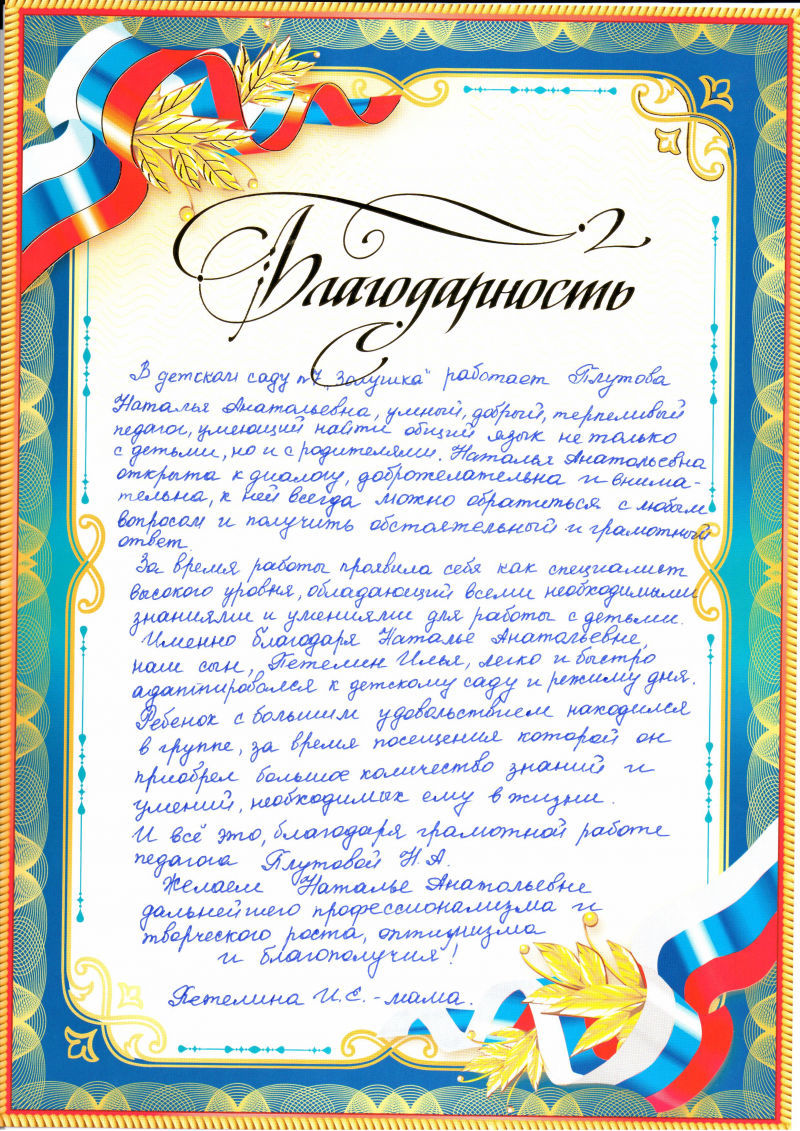 Благодарность
В детском саду №7 „Золушка" работает Плутова
Наталья Анатольевна, умный, добрый, терпеливый
педагог, умеющий найти общий язык не только
с детьми, но и с родителями. Наталья Анатольевна
открыта к диалогу, доброжелательна и внима-
тельна, к ней всегда можно обратиться с любым
вопросом и получить обстоятельный и грамотный
ответ.
За время работы проявила себя как специалист
высокого уровня, обладающий всеми необходимыми
знаниями и умениями для работы с детьми.
Именно благодаря Наталье Анатольевне,
наш сын, Петелин Илья, легко и быстро
адаптировался к детскому саду и режиму дня.
Ребенок с большим удовольствием находился
в группе, за время посещения которой он
приобрел большое количество знаний и
умений, необходимых ему в жизни.
И всё это, благодаря грамотной работе
педагога Плутовой Н.А.
Желаем Наталье Анатольевне
дальнейшего профессионализма и
творческого роста, оптимизма
и благополучия!
Петелина И.Е. - мама.